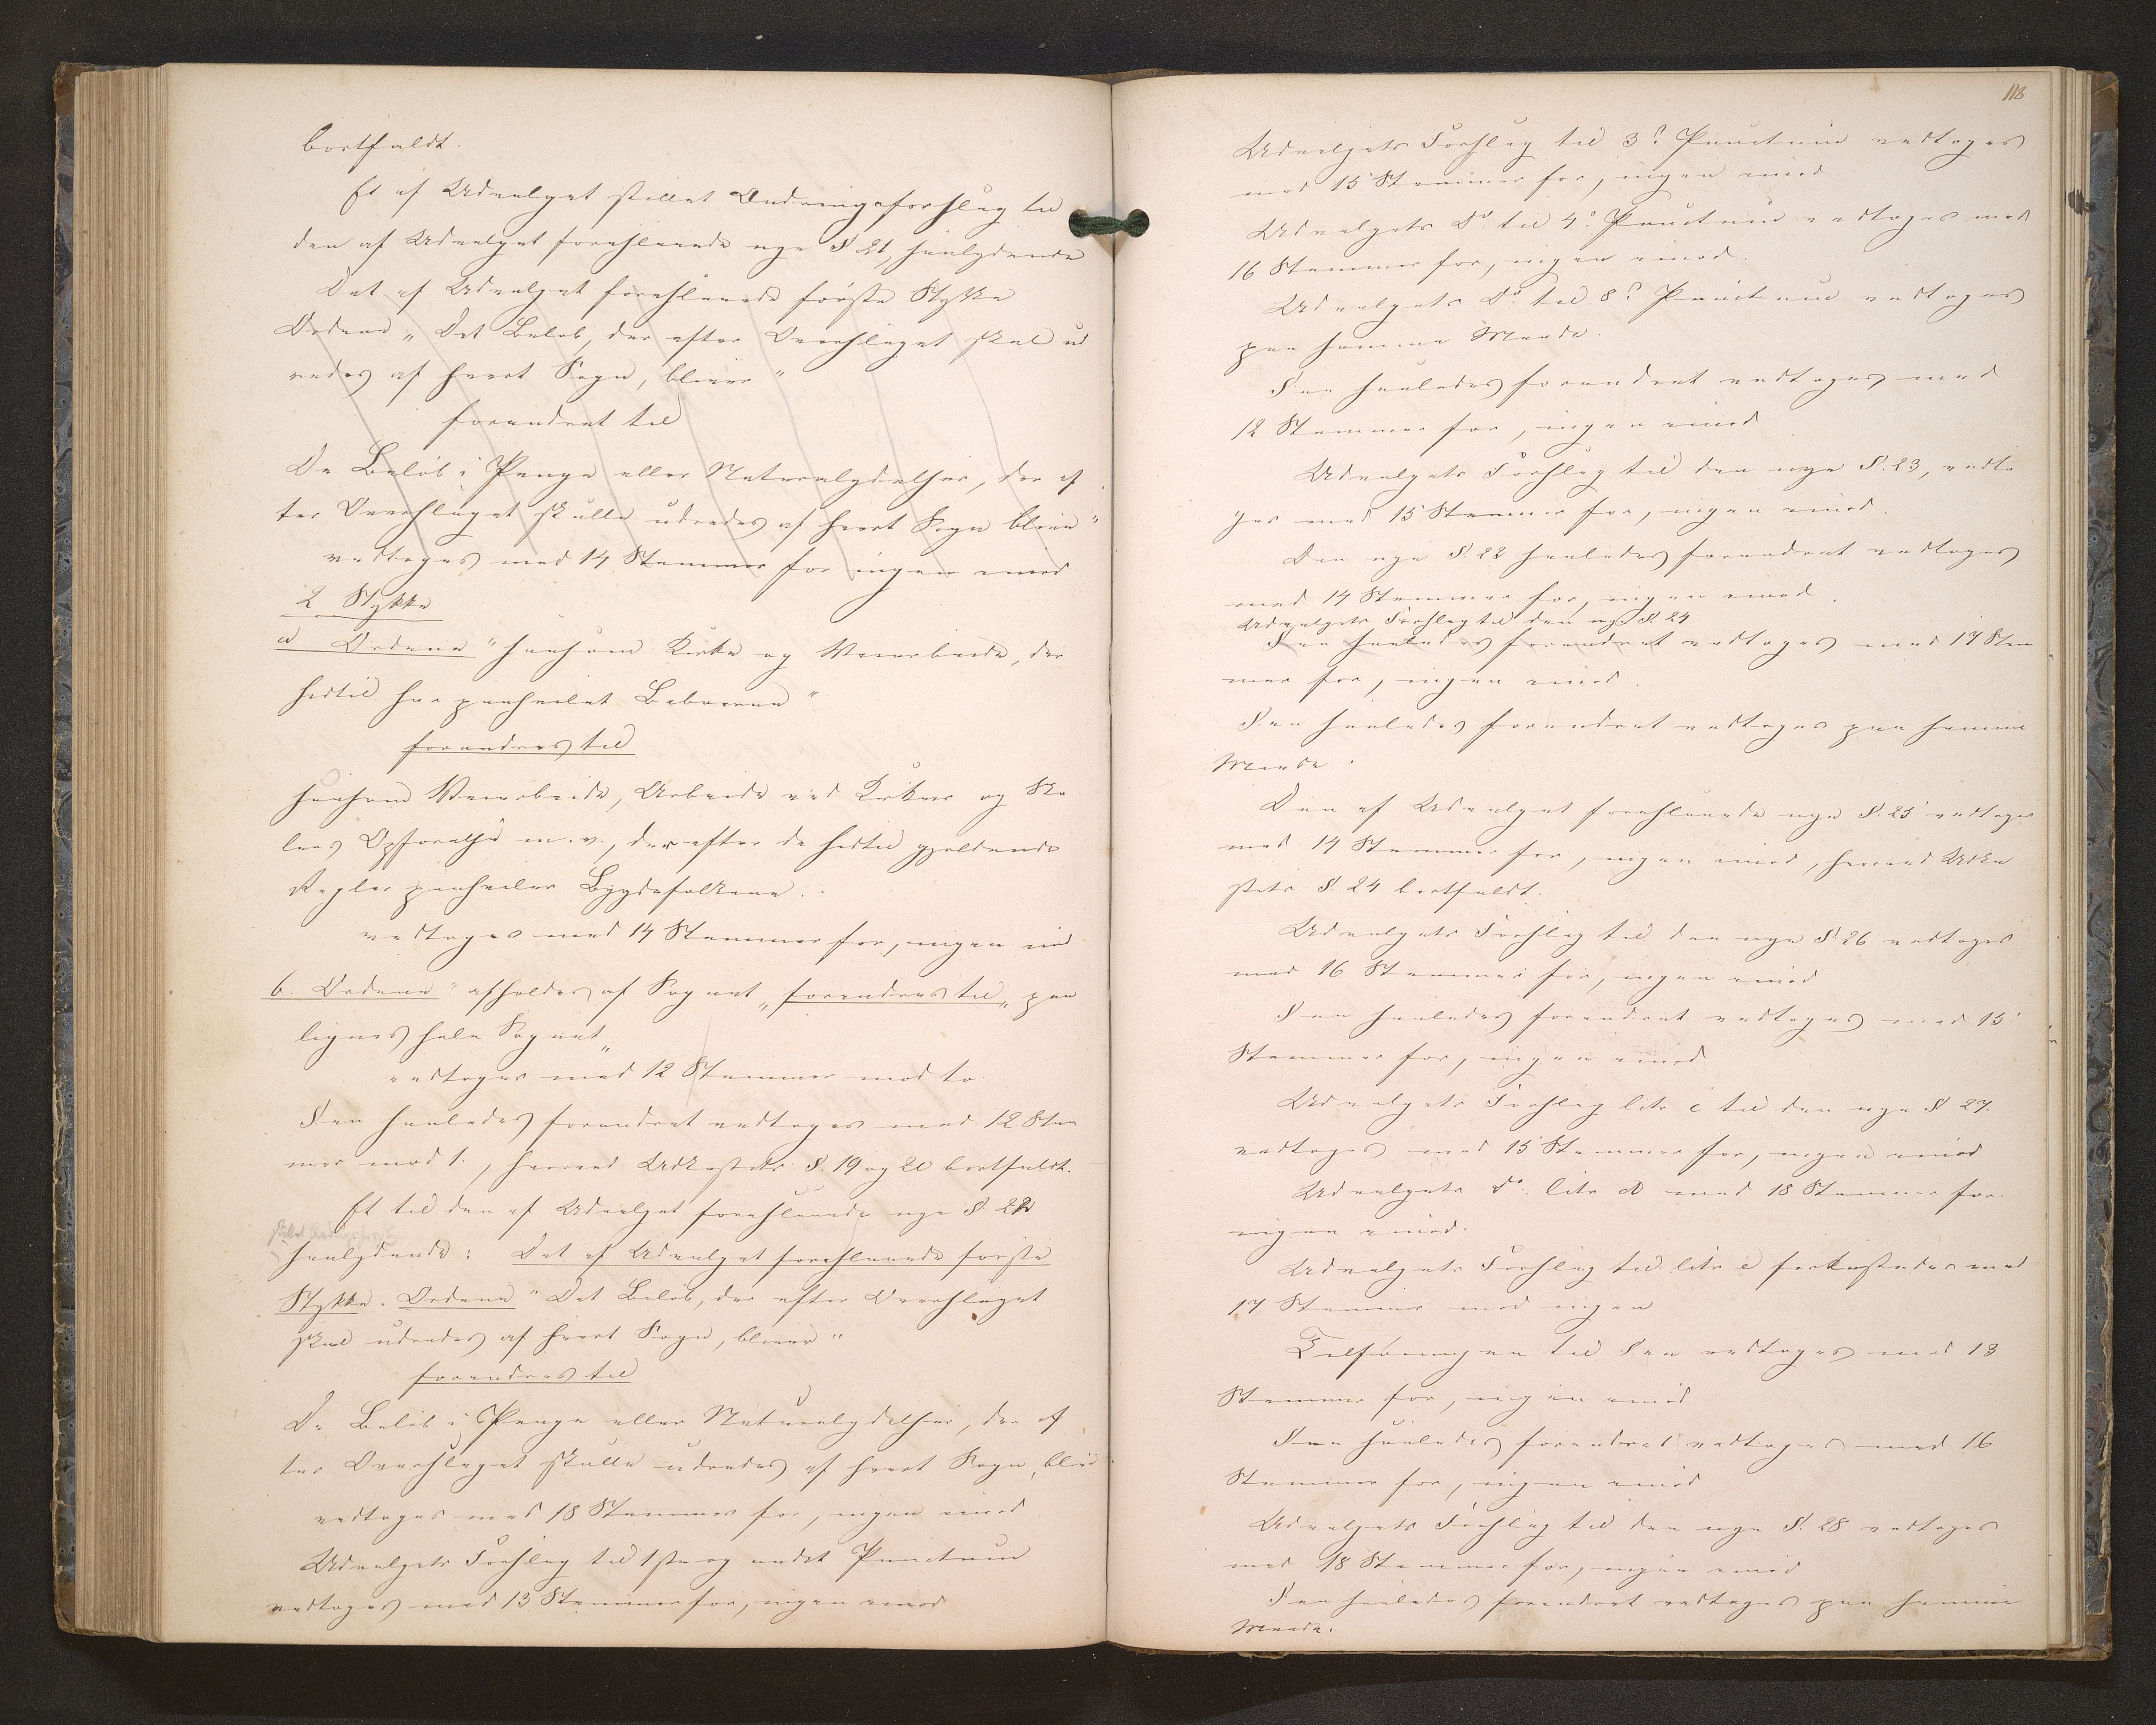 bortfaldt.
Et af Udvalget stillet Ændringsforslag til
den af Udvalget foreslaaede nye §. 21, saalydende
Det af Udvalget foreslaaede første Stykke
Ordene „Det Beløb, der efter Overslaget skal ud
redes af hvert Sogn, bliver"
forandret til
De Beløb i Penge eller Naturalydelser, der ef
ter Overslaget skulle udredes af hvert Sogn blive"
vedtoges med 14 Stemmer for ingen imod
2 Stykke
a Ordene "saasom Kirke og Veiarbeide, der
hidtil har paahvilet Beboerne"
forandres til
saasom Veiarbeide, Arbeide ved Kirker og Sko
lers Opførelse m.v., der efter de hidtil gjeldende
Regler paahviler Bygdefolkene.
vedtoges med 14 Stemmer for, ingen im
b. Ordene "afholdes af Sognet" forandres til „paa
lignes hele Sognet"
vedtoges med 12 Stemmer mod to
§en saaledes forandret vedtoges med 12 Stem
mer mod 1, hvorved Udkastets §. 19 og 20 bortfaldt.
Et til den af Udvalget foreslaaede nye § 22
stillet Ændringsforsl
saalydende: Det af Udvalget foreslaaede første
Stykke. Ordene "Det Beløb, der efter Overslaget
skal udredes af hvert Sogn, bliver"
forandres til
De Beløb i Penge eller Naturalydelser, der ef
ter Overslaget skulle udredes af hvert Sogn, bliv
vedtoges med 18 Stemmer for, ingen imod
Udvalgets Forslag til 1ste og andet Punctum
vedtoges med 13 Stemmer for, ingen imod
118
Udvalgets Forslag til 3? Punctum vedtoges
med 15 Stemmer for, ingen imod
Udvalgets Do til 4? Punctum vedtoges med
16 Stemmer for, ingen imod.
Udvalgets Do til 8? Punctum vedtoges
paa samme Maade.
§en saaledes forandret vedtoges med
12 Stemmer for, ingen imod
Udvalgets Forslag til den nye §. 23, vedto
ges med 15 Stemmer for, ingen imod.
Den nye §. 22 saaledes forandret vedtoges
med 14 Stemmer for, ingen imod.
Udvalgets Forslag til den nye § 24
§en saaledes forandret vedtoges med 17 Stem
mer for, ingen imod.
§en saaledes forandret vedtoges paa samme
Maade.
Den af Udvalget foreslaaede nye §. 25 vedtoges
med 14 Stemmer for, ingen imod, hvorved Udka
stets §. 24 bortfaldt.
Udvalgets Forslag til den nye §. 26 vedtoges
med 16 Stemmer for, ingen imod
§en saaledes forandret vedtoges med 15
Stemmer for, ingen imod
Udvalgets Forslag litr c til den nye § 27.
vedtoges med 15 Stemmer for, ingen imod
Udvalgets do. litr d med 18 Stemmer for
ingen imod.
Udvalgets Forslag til litr e forkastedes med
17 Stemmer mod ingen
Tilføiningen til §en vedtoges med 13
Stemmer for, ingen imod
§en saaledes forandret vedtoges med 16
Stemmer for, ingen imod
Udvalgets Forslag til den nye §. 28 vedtoges
med 18 Stemmer for, ingen imod
§en saaledes forandret vedtoges paa samme
Maade.